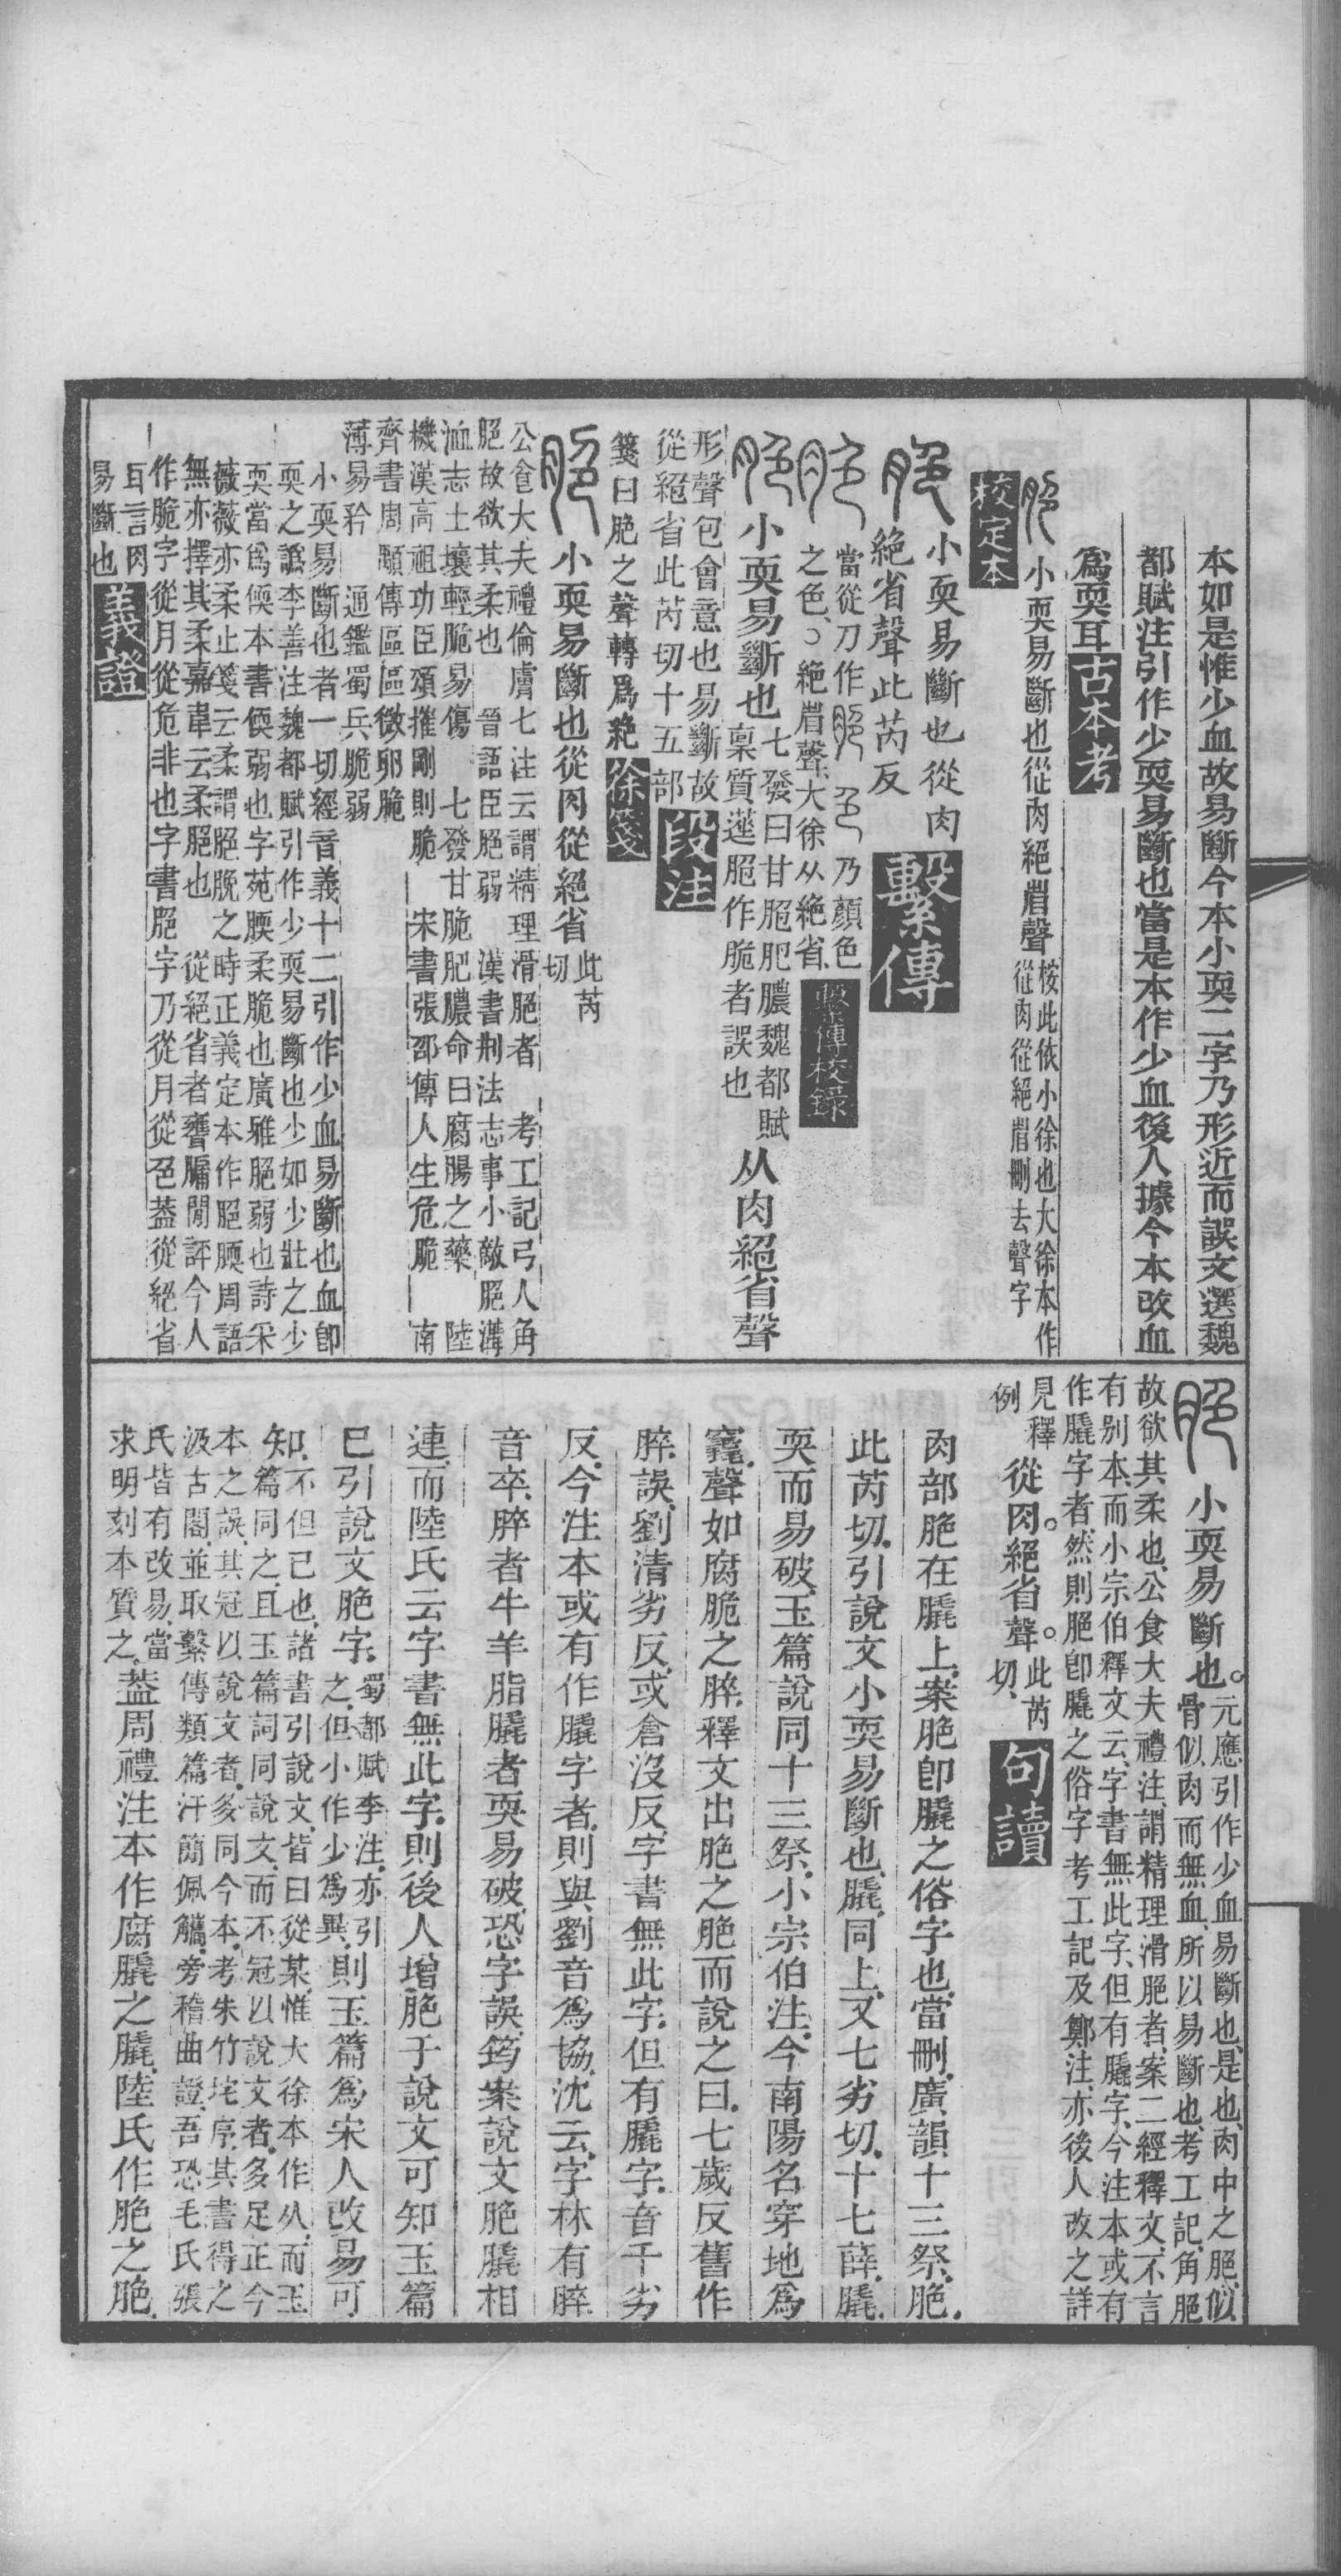 本如是惟少血故易斷今本小耎二字乃形近而誤文選魏
都賦注引作少耎易斷也當是本作少血後人據今本改血
爲耎耳古本考
小耎易斷也從肉絕省聲
桉此依小徐也大徐本作
從肉從絕省刪去聲字
校定本
小耎易斷也從肉
絕省聲此芮反
繫傳
當從刀作乃顏色
之色絕省聲大徐从絕省
繫傳校錄
小耎易斷也
七發曰甘脃肥膿魏都賦
稟質遳脃作脆者誤也
从肉絕省聲
形聲包會意也易斷故
從絕省此芮切十五部
段注
箋曰脃之聲轉爲
徐箋
小耎易斷也從肉從絕省
此芮
切
公食大夫禮倫膚七注云謂精理滑脃者 考工記弓人角
脃故欲其柔也 晉語臣脃弱 漢書刑法志事小敵脃溝
洫志土壤輕脆易傷 七發甘脆肥膿命曰腐腸之藥 陸
機漢高祖功臣頌摧剛則脆 宋書張邵傳人生危脆 南
齊書周顒傳區區微卵脆
薄易矜 通鑑蜀兵脆弱
小耎易斷也者一切經音義十二引作少血易斷也血卽
耎之譌李善注魏都賦引作少耎易斷也少如少壯之少
耎當爲偄本書偄弱也字苑腝柔脆也廣雅脃弱也詩采
薇薇亦柔止箋云柔謂脃脕之時正義定本作脃腝周語
無亦擇其柔嘉韋云柔脃也 從絕省者龤牖閒評今人
作脆字從月從危非也字書脃字乃從月從色葢從絕省
耳言肉
易斷也
義證
小耎易斷也
元應引作少血易斷也是也肉中之脃似
骨似肉而無血所以易斷也考工記角脃
故欲其柔也公食大夫禮注謂精理滑脃者案二經釋文不言
有別本而小宗伯釋文云字書無此字但有膬字今注本或有
作膬字者然則脃卽膬之俗字考工記及鄭注亦後人改之詳
見釋
例
從肉絕省聲
此芮
切
句讀
肉部脃在膬上案脃卽膬之俗字也當刪廣韻十三祭脃
此芮切引說文小耎易斷也膬同上又七劣切十七薛膬
耎而易破玉篇說同十三祭小宗伯注今南陽名穿地爲
竁聲如腐脆之脺釋文出脃之脃而說之曰七歲反舊作
脺誤劉清劣反或倉沒反字書無此字但有膬字音千劣
反今注本或有作膬字者則與劉音爲協沈云字林有脺
音卒脺者牛羊脂膬者耎易破恐字誤筠案說文脃膬相
連而陸氏云字書無此字則後人增脃于說文可知玉篇
已引說文脃字
蜀都賦李注亦引
之但小作少爲異
則玉篇爲宋人改易可
知
不但已也諸書引說文皆曰從某惟大徐本作从而玉
篇同之且玉篇詞同說文而不冠以說文者多足正今
本之誤其冠以說文者多同今本考朱竹垞序其書得之
汲古閣並取繫傳類篇汗簡佩觿旁稽曲證吾恐毛氏張
氏皆有改易當
求明刻本質之
葢周禮注本作腐膬之膬陸氏作脃之脃